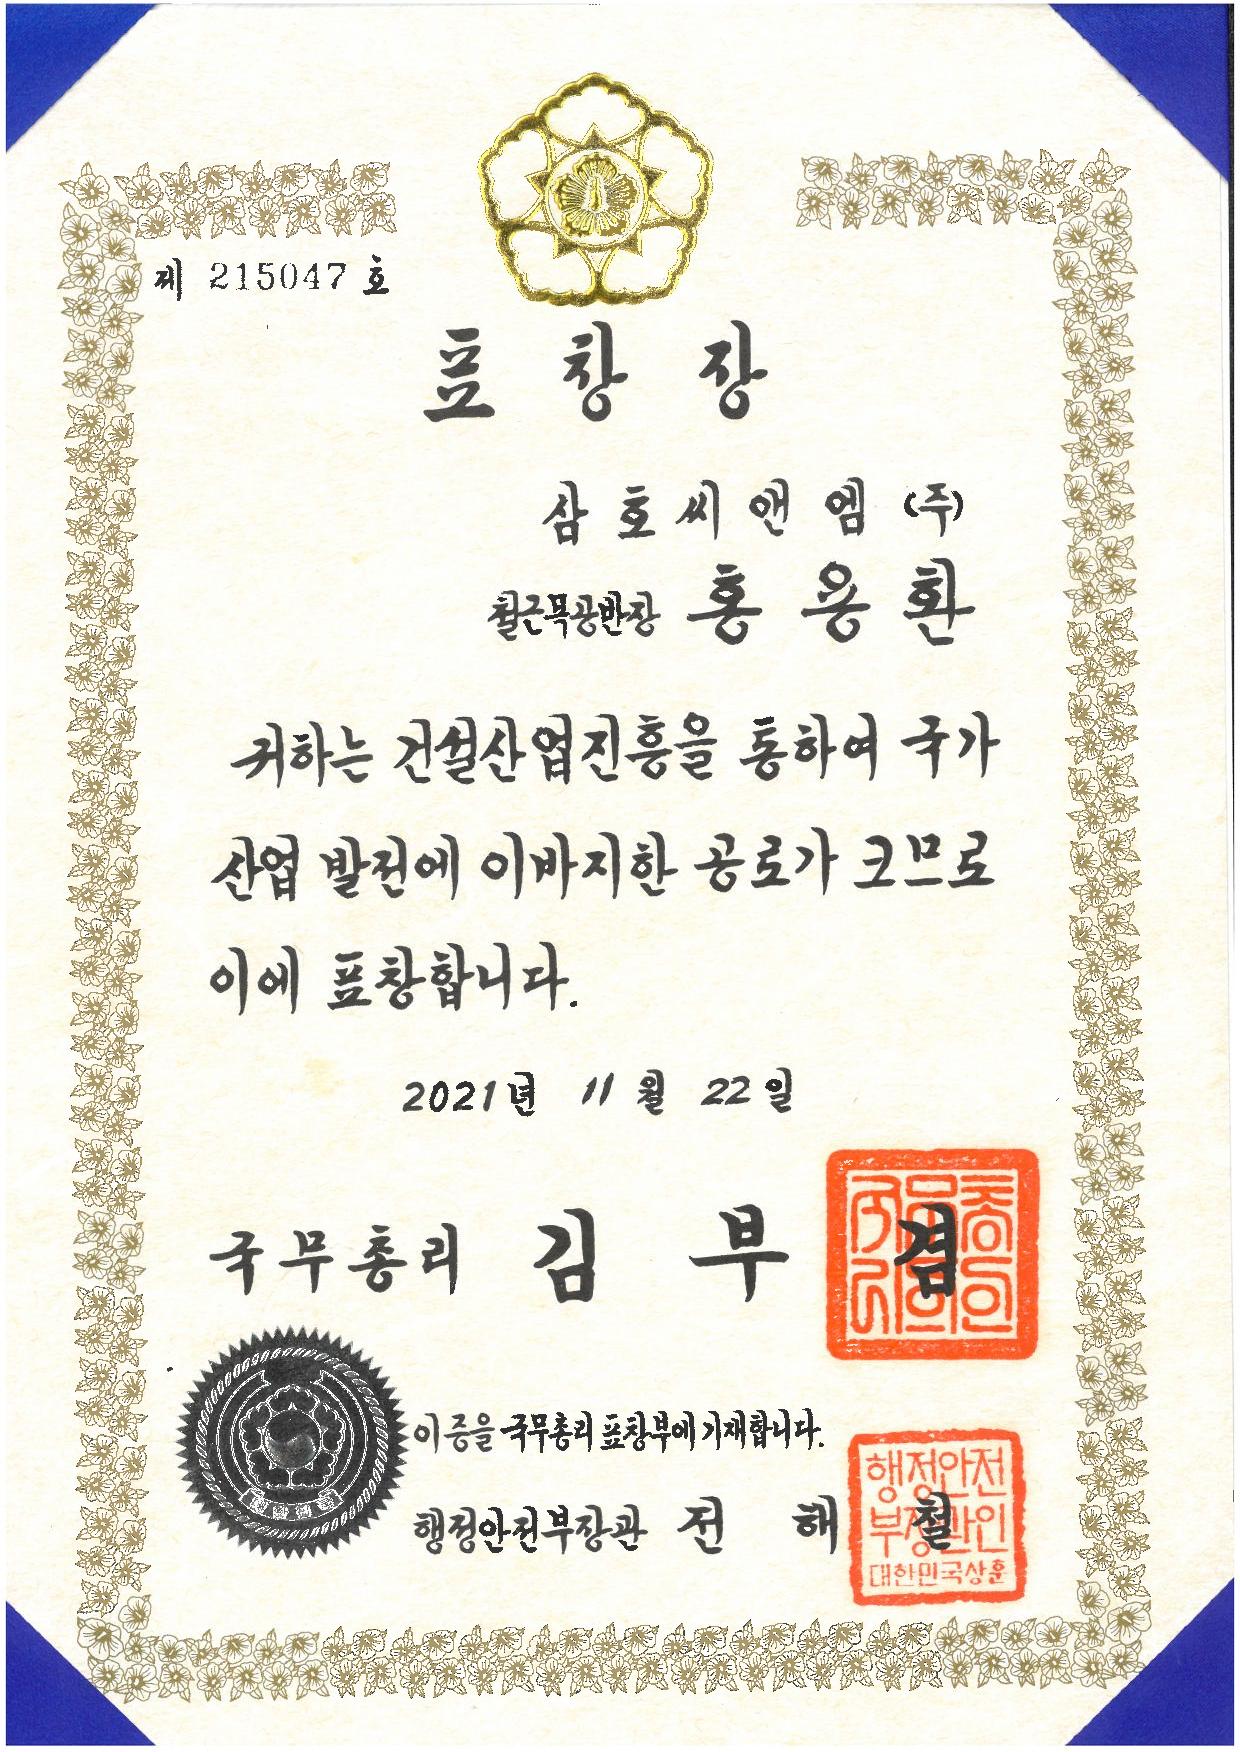 제 215047 호
표창장
삼호씨앤엠 (주)
철근목공반장 홍용환
귀하는 건설산업진흥을 통하여 국가
산업 발전에 이바지한 공로가 크므로
이에 표창합니다.
2021년 11월 22일
국무총리 김부겸
이 증을 국무총리 표창부에 기재합니다.
행정안전부장관 전해철
행정안전
부장관인
대한민국상훈